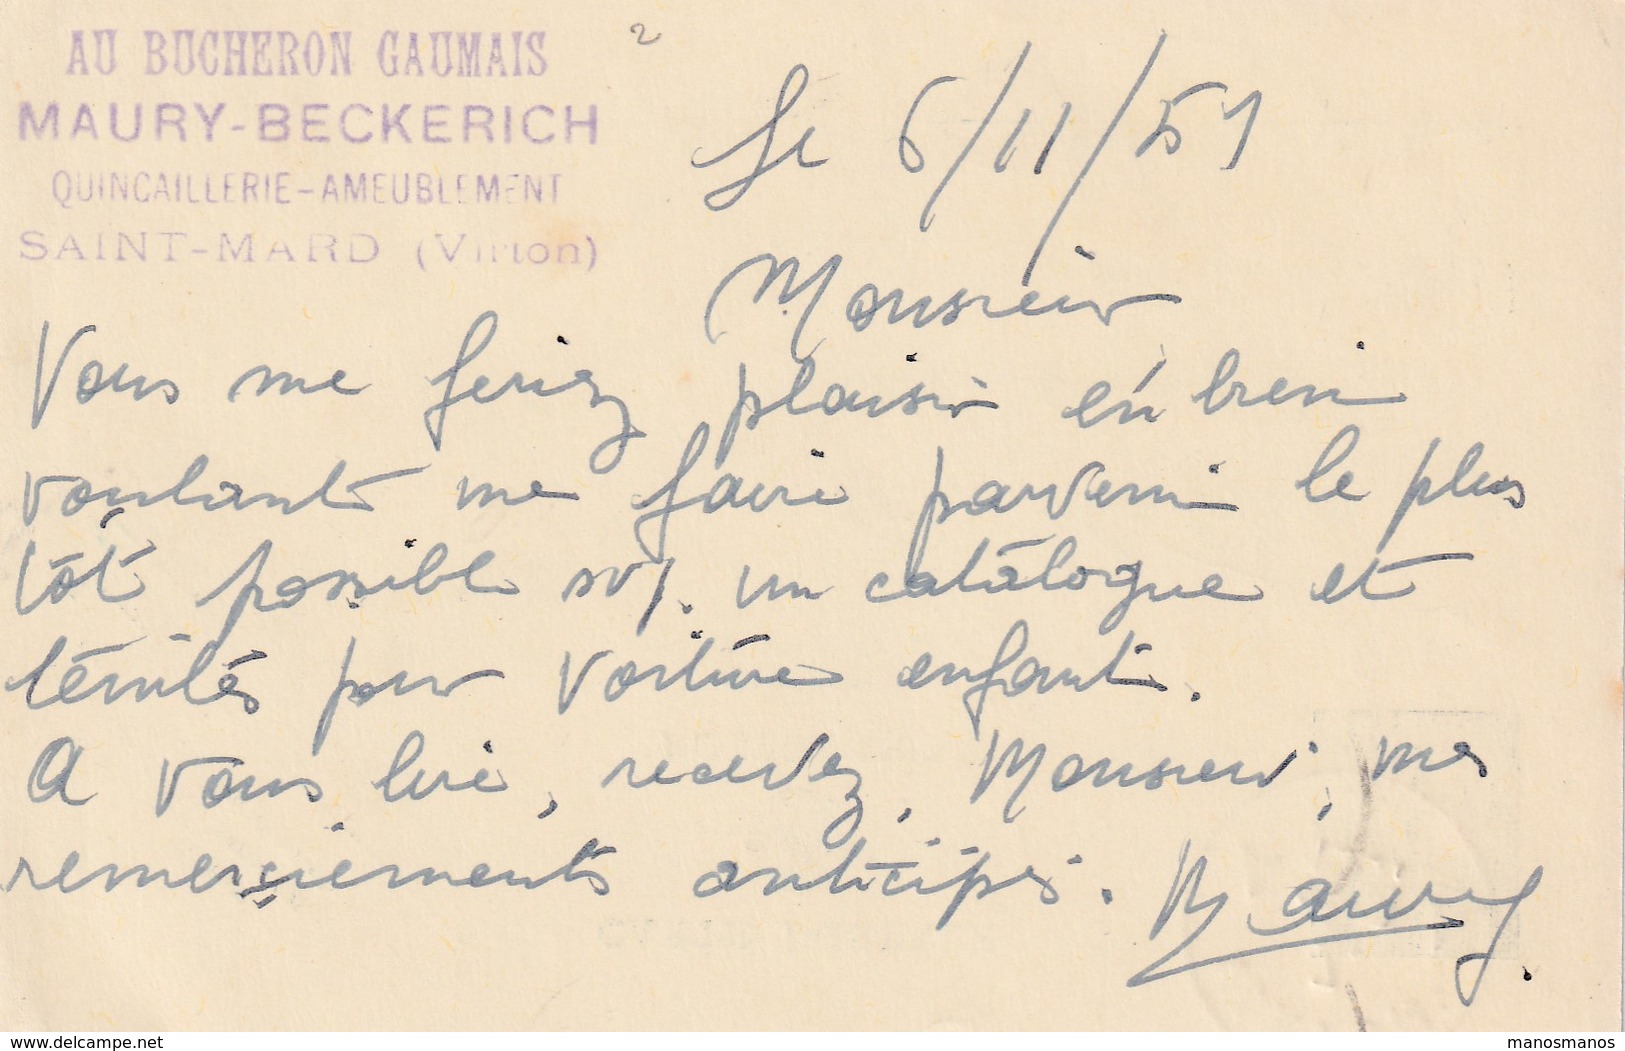 AU BUCHERON GAUMAIS
MAURY-BECKERICH
QUINCAILLERIE-AMEUBLEMENT
SAINT-MARD (Virton)
2
le 6/11/51
Monsieur
Vous me feriez plaisir en bien
voulant me faire parvenir le plus
tôt possible svp. un catalogue et
pour voiture enfant.
A vous lire, recevez, Monsieur, mes
remerciements anticipés. Maury
delcampe.net
manosmanos